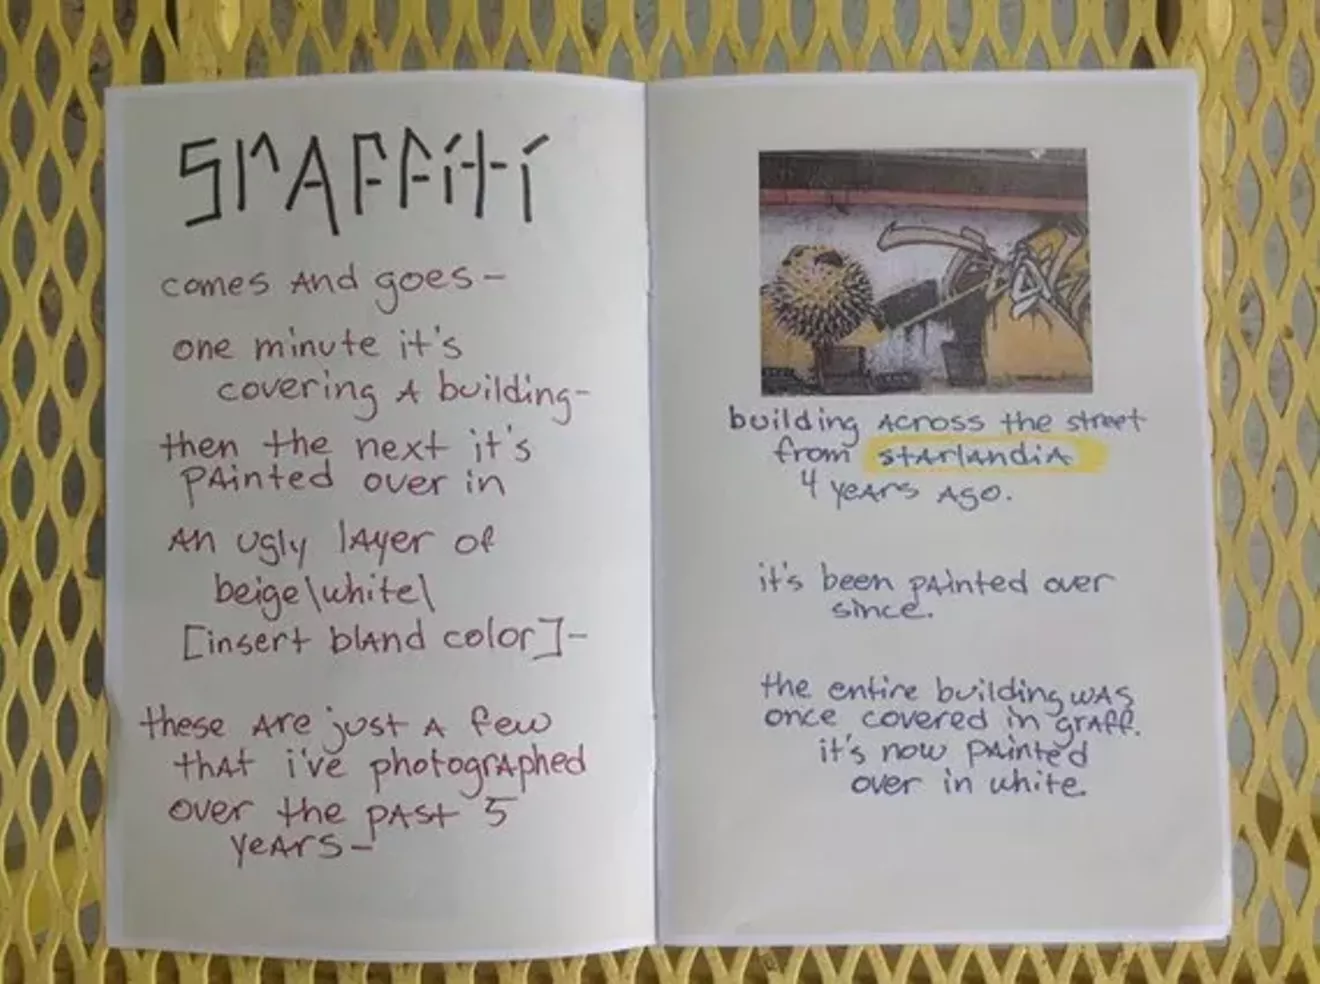 GrAFFiti
comes And goes -
one minute it's
covering A building -
then the next it's
pAinted over in
An ugly lAyer of
beige\white\
[insert blAnd color] -
these Are just A few
thAt i've photogrAphed
over the pAst 5
yeArs -
building Across the street
from stArlAndiA
4 yeArs Ago.
it's been pAinted over
since.
the entire building wAs
once covered in grAff.
it's now pAinted
over in white.